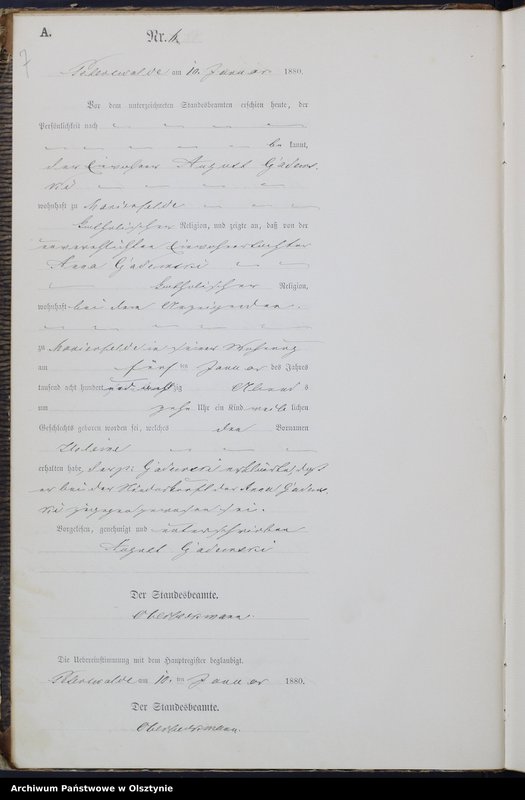 A.
Nr. 6
7
am 10. Januar 1880.
Vor dem unterzeichneten Standesbeamten erschien heute, der
Persönlichkeit nach
be kannt,
der Einwohner August Gadom-
ski
wohnhaft zu Marienfelde
katholischer Religion, und zeigte an, daß von der
unverehelichten Einwohnertochter
Anna Gadomski
katholischer Religion,
wohnhaft bei dem Anzeigenden
zu Marienfelde in seiner Wohnung
am fünf ten Januar des Jahres
tausend acht hundert und achtzig Abend s
um zehn Uhr ein Kind weib lichen
Geschlechts geboren worden sei, welches den Vornamen
erhalten habe, der p. Gadomski erklärte, daß
er bei der Niederkunft der Anna Gadom-
ski zugegen gewesen sei.
Vorgelesen, genehmigt und unterschrieben
August Gadomski
Der Standesbeamte.
Die Uebereinstimmung mit dem Hauptregister beglaubigt.
am 10. ten Januar 1880.
Der Standesbeamte.
Archiwum Państwowe w Olsztynie